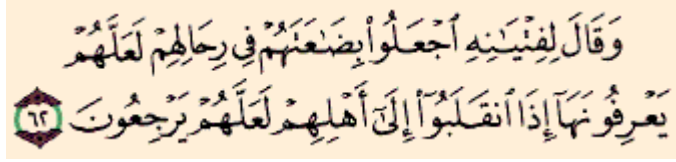 وَقَالَ لِفِتْيَـٰنِهِ ٱجْعَلُوا۟ بِضَـٰعَتَهُمْ فِى رِحَالِهِمْ لَعَلَّهُمْ
يَعْرِفُونَهَآ إِذَا ٱنقَلَبُوٓا۟ إِلَىٰٓ أَهْلِهِمْ لَعَلَّهُمْ يَرْجِعُونَ ٦٢